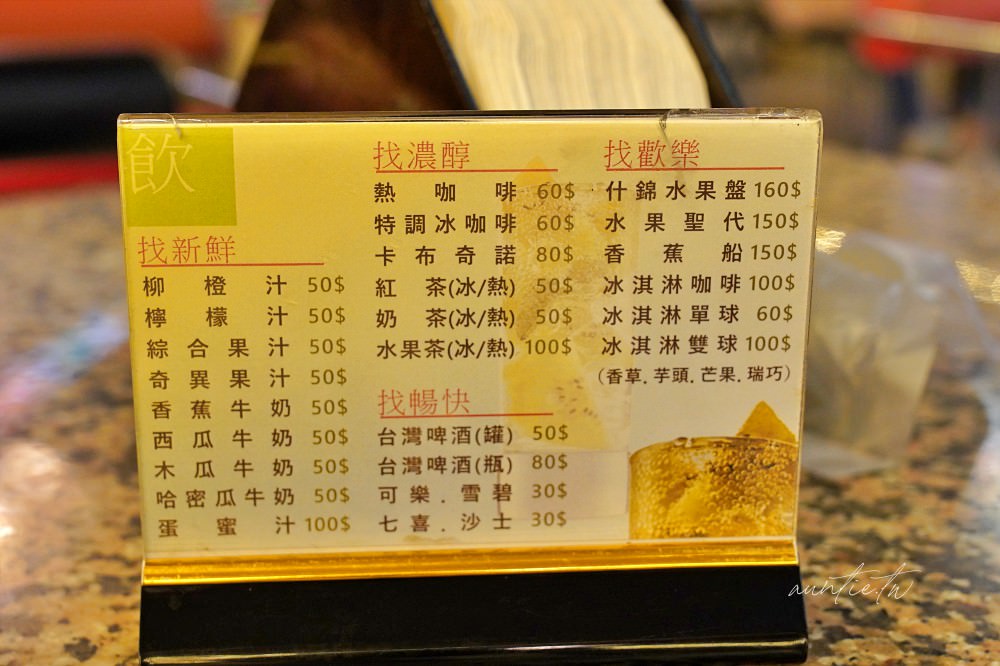 飲
找新鮮
柳橙汁 50$
檸檬汁 50$
綜合果汁 50$
奇異果汁 50$
香蕉牛奶 50$
西瓜牛奶 50$
木瓜牛奶 50$
哈密瓜牛奶 50$
蛋蜜汁 100$
找濃醇
熱咖啡 60$
特調冰咖啡 60$
卡布奇諾 80$
紅茶(冰/熱) 50$
奶茶(冰/熱) 50$
水果茶(冰/熱) 100$
找暢快
台灣啤酒(罐) 50$
台灣啤酒(瓶) 80$
可樂.雪碧 30$
七喜.沙士 30$
找歡樂
什錦水果盤 160$
水果聖代 150$
香蕉船 150$
冰淇淋咖啡 100$
冰淇淋單球 60$
冰淇淋雙球 100$
(香草.芋頭.芒果.瑞巧)
auntie.tw